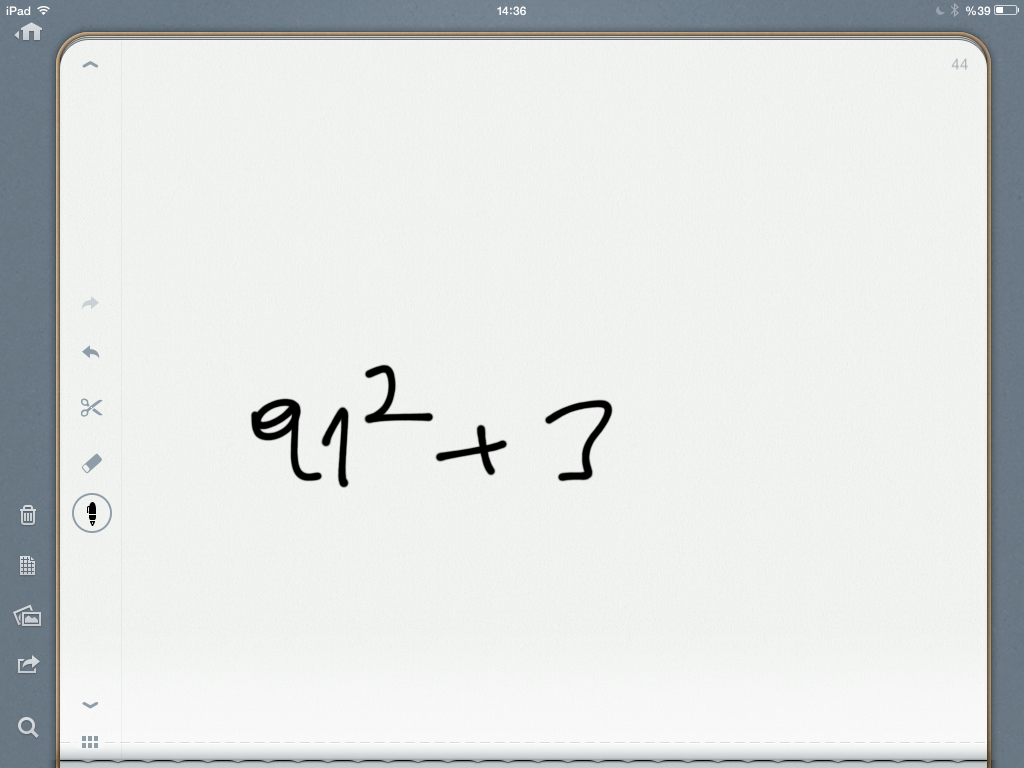 iPad 14:36 %39
44
91² + 3